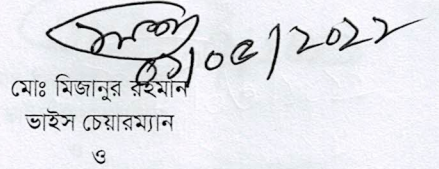 ০১/০৫/2022
মোঃ মিজানুর রহমান
ভাইস চেয়ারম্যান
ও